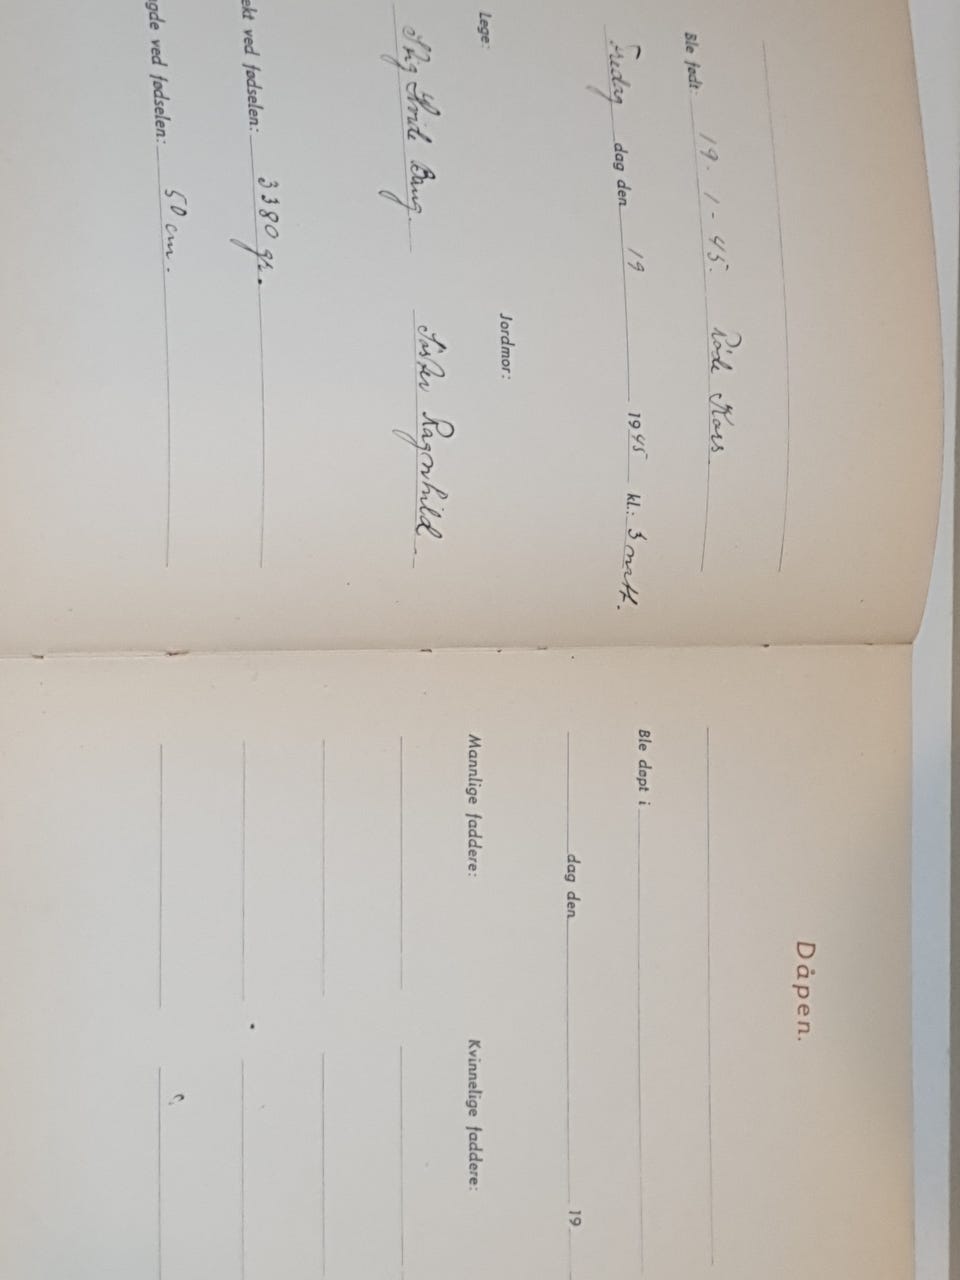 Ble født: 19. 1 - 45. Røde Kors
Fredag dag den 19 1945 kl.: 3 natt.
Lege:
Jordmor:
Bang. Søster Ragnhild
ekt ved fødselen: 3380 gr.
gde ved fødselen: 50 cm.
Dåpen.
Ble døpt i
dag den 19
Mannlige faddere: Kvinnelige faddere: